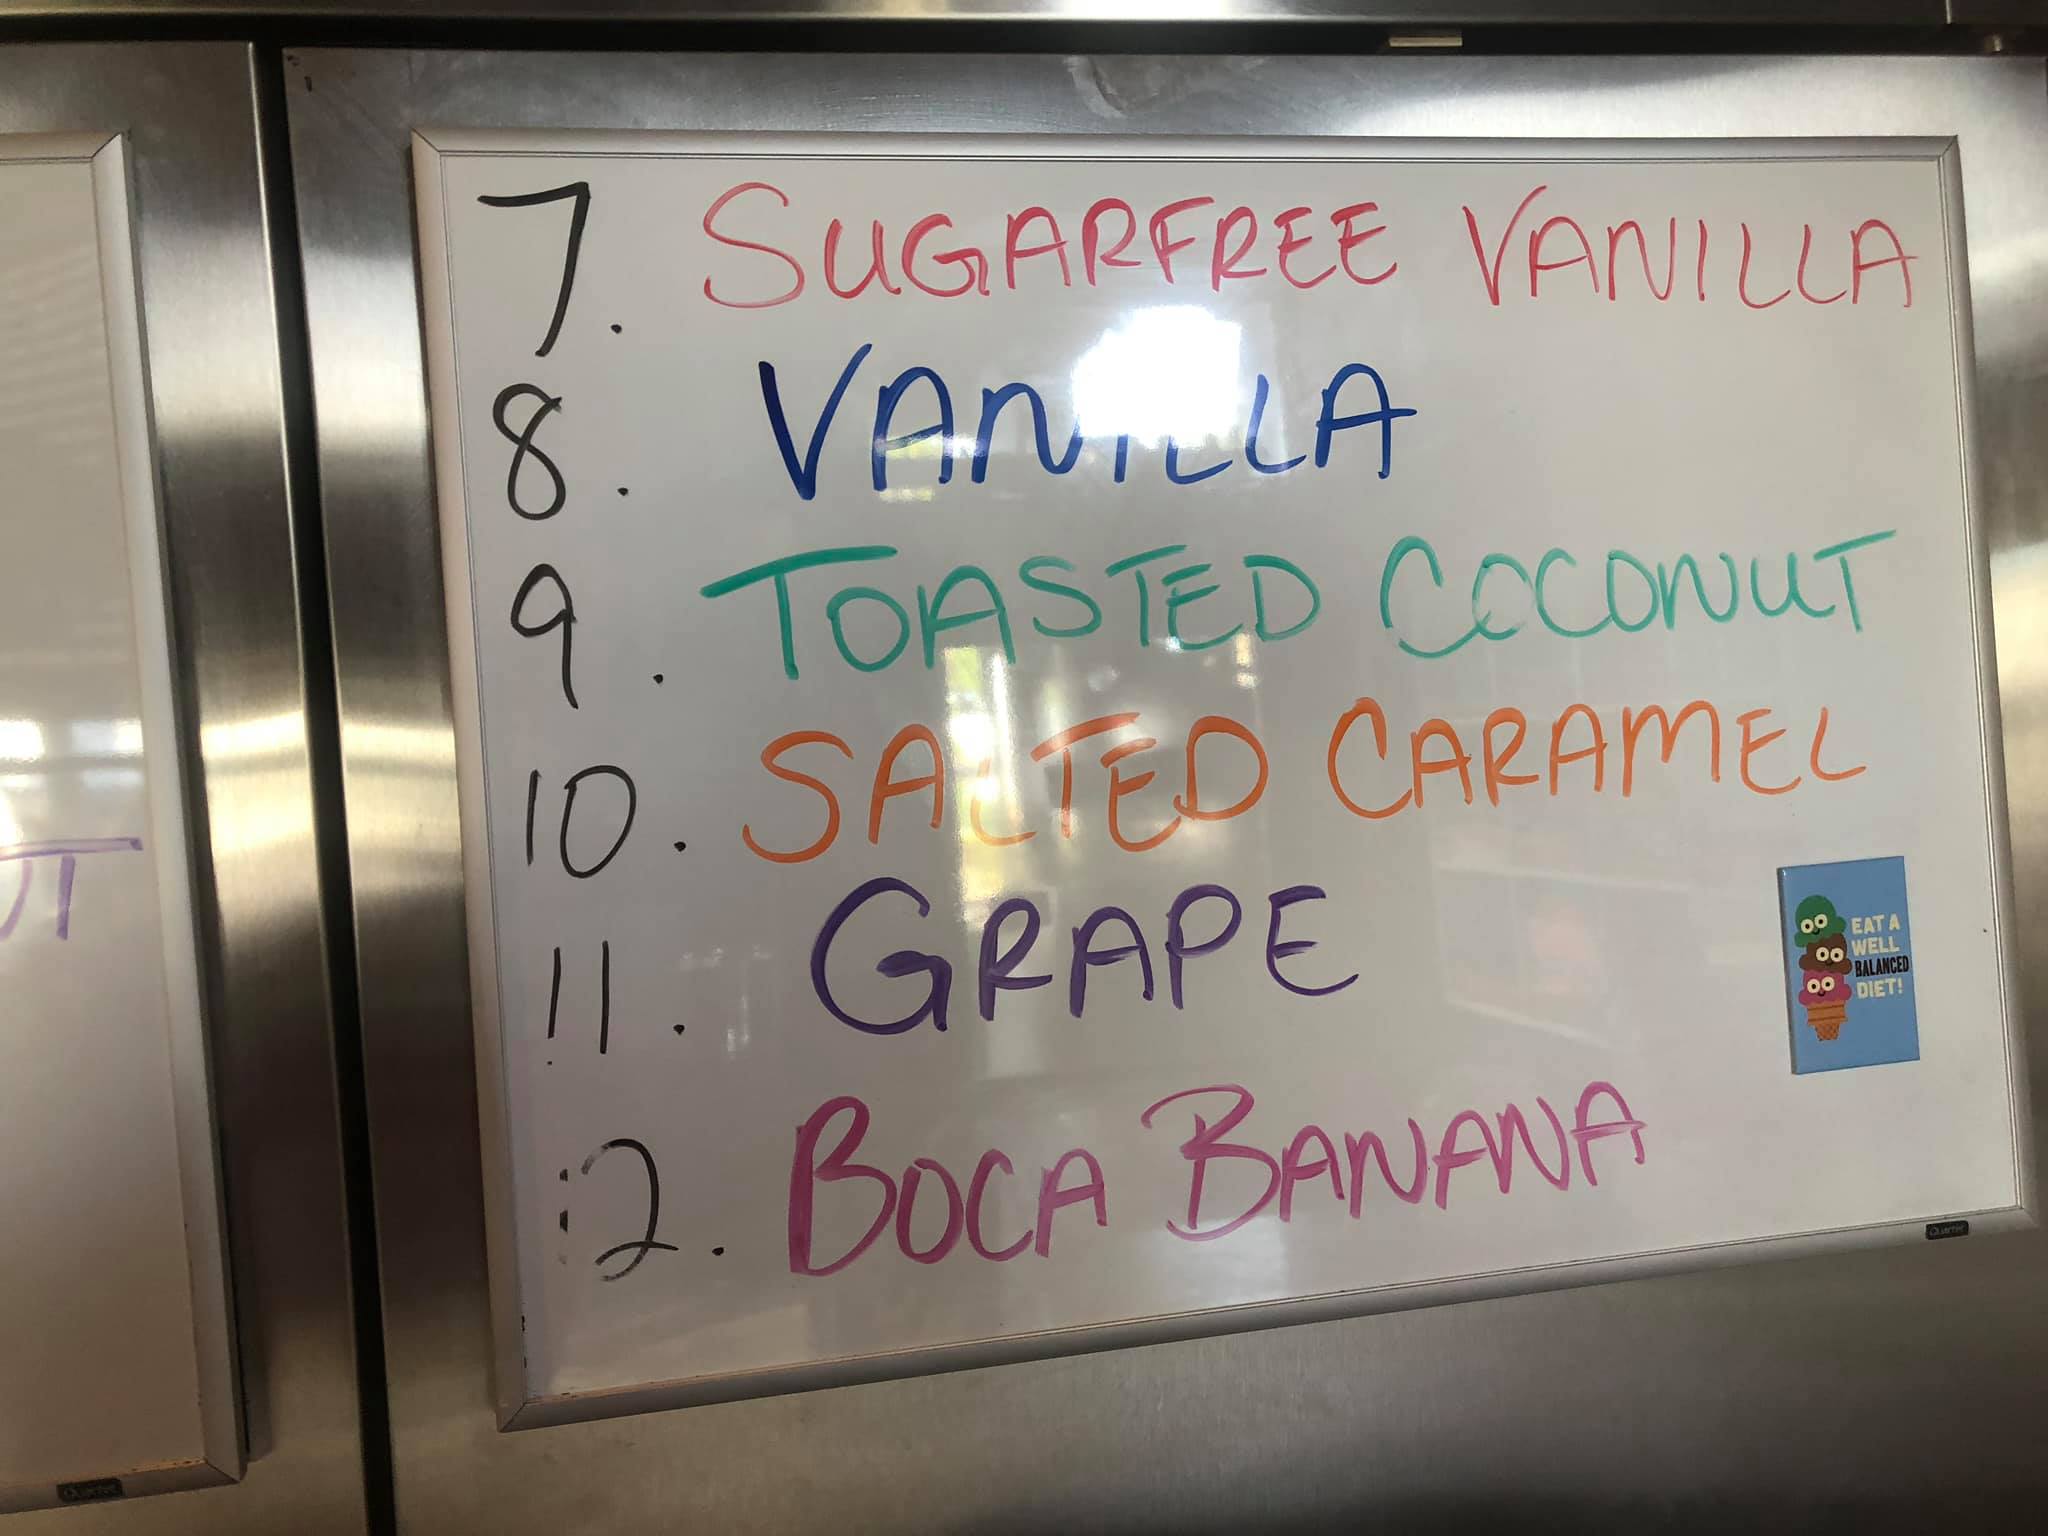 7. SUGARFREE VANILLA
8. VANILLA
9. TOASTED COCONUT
10. SALTED CARAMEL
11. GRAPE
12. BOCA BANANA
EAT A
WELL
BALANCED
DIET!
Quartet
UT
Quartet